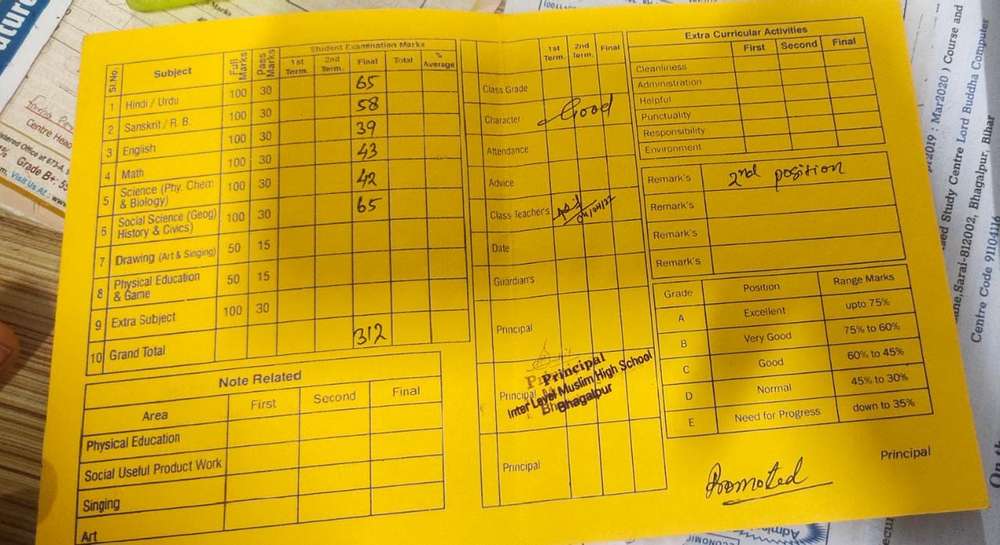 Student Examination Marks
Sl.No Subject Full Marks Pass Marks 1st Term. 2nd Term. Final Total % Average
1 Hindi / Urdu 100 30 65
2 Sanskrit / R. B. 100 30 58
3 English 100 30 39
4 Math 100 30 43
5 Science (Phy. Chem & Biology) 100 30 42
6 Social Science (Geog) History & Civics) 100 30 65
7 Drawing (Art & Singing) 50 15
8 Physical Education & Game 50 15
9 Extra Subject 100 30
10 Grand Total 312
Note Related
Area First Second Final
Physical Education
Social Useful Product Work
Singing
Art
1st Term. 2nd Term. Final
Class Grade
Character Good
Attendance
Advice
Class Teacher's
Date
Guardian's
Principal
Principal
Principal
Inter Level Muslim High School
Bhagalpur
Principal
Extra Curricular Activities
First Second Final
Cleanliness
Administration
Helpful
Punctuality
Responsibility
Environment
Remark's 2nd position
Remark's
Remark's
Remark's
Grade Position Range Marks
A Excellent upto 75%
B Very Good 75% to 60%
C Good 60% to 45%
D Normal 45% to 30%
E Need for Progress down to 35%
Principal
Promoted
Centre Head
Grade B+:
Visit Us At:
2019 : Mar2020 ) Course and
Study Centre Lord Buddha Computer
Sarai-812002, Bhagalpur, Bihar
Centre Code 91104116